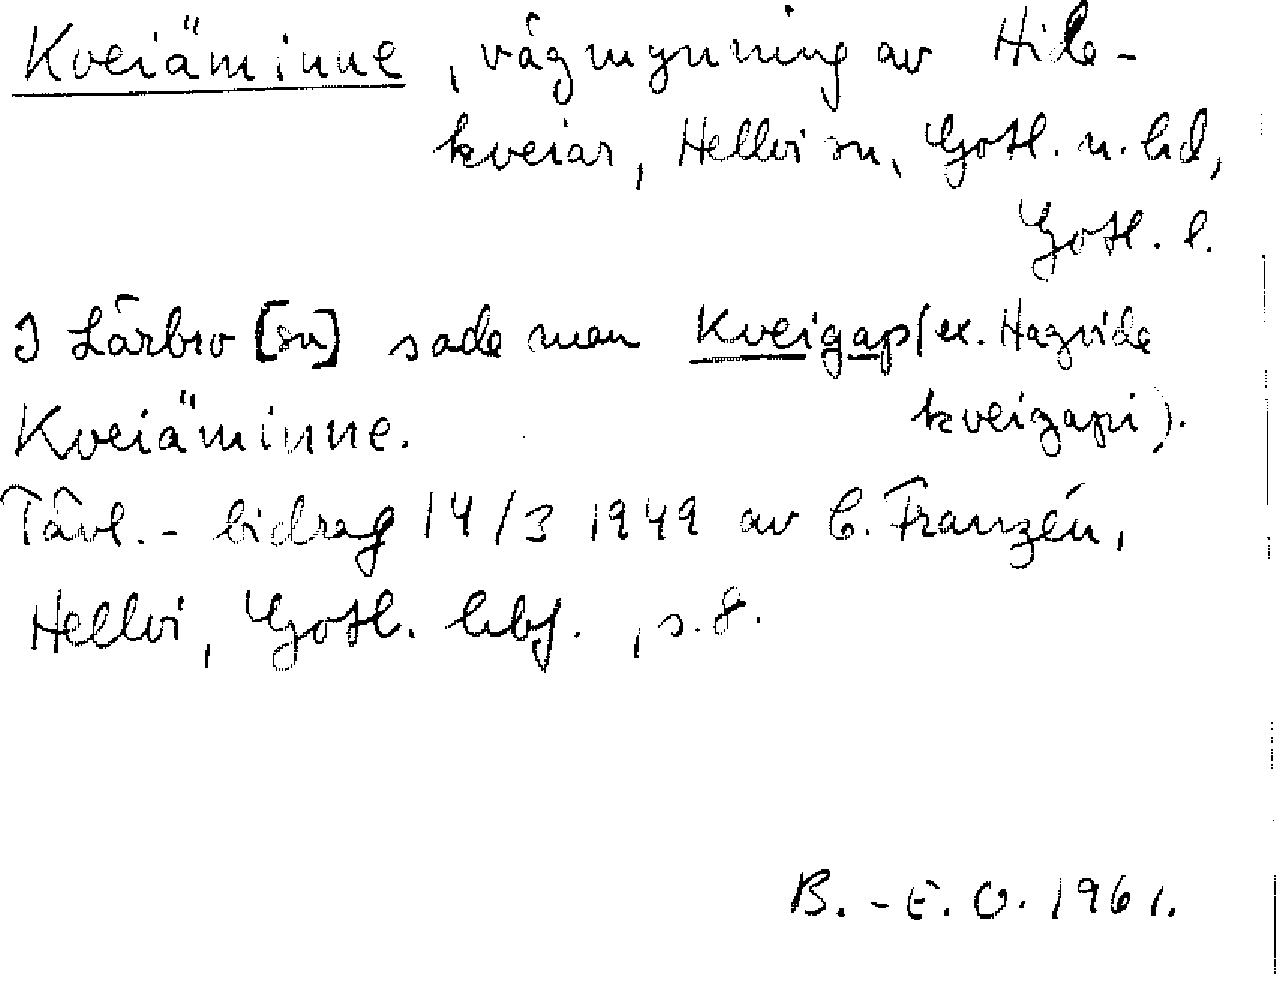 Kveiäminne, vägmynning av Hile-
kveiar, Hellvi sn, Gotl. n. hd,
Gotl. l.
I Lärbro [sn] sade man Kveigap (ex. Hagvide
kveigapi).
Kveiäminne.
Tävl.-bidrag 14/3 1949 av C. Franzén,
Hellvi, Gotl. hbf., s. 8.
B.-E. O. 1961.